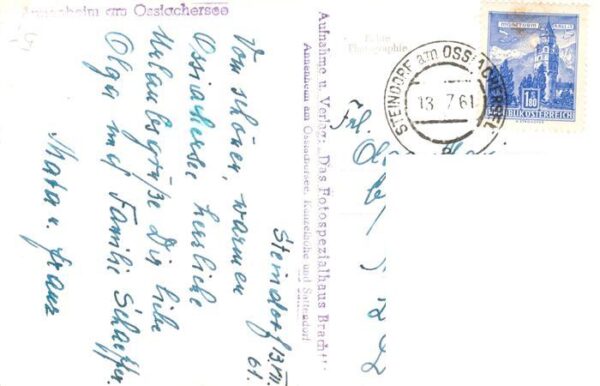 Annenheim am Ossiachersee
Steindorf 13. VII.
61.
Vom schönen, warmen
Ossiachersee herzliche
Urlaubsgrüße Dir liebe
Olga und Familie Schaeffer.
u. Franz
Aufnahme u. Verlag: „Das Fotospezialhaus Bracht“
Annenheim am Ossiachersee, Kanzelhöhe und Sattendorf
Echte
Photographie
STEINDORF am OSSIACHERSEE
13. 7. 61
1.80
REPUBLIK ÖSTERREICH
Frl.
Olga